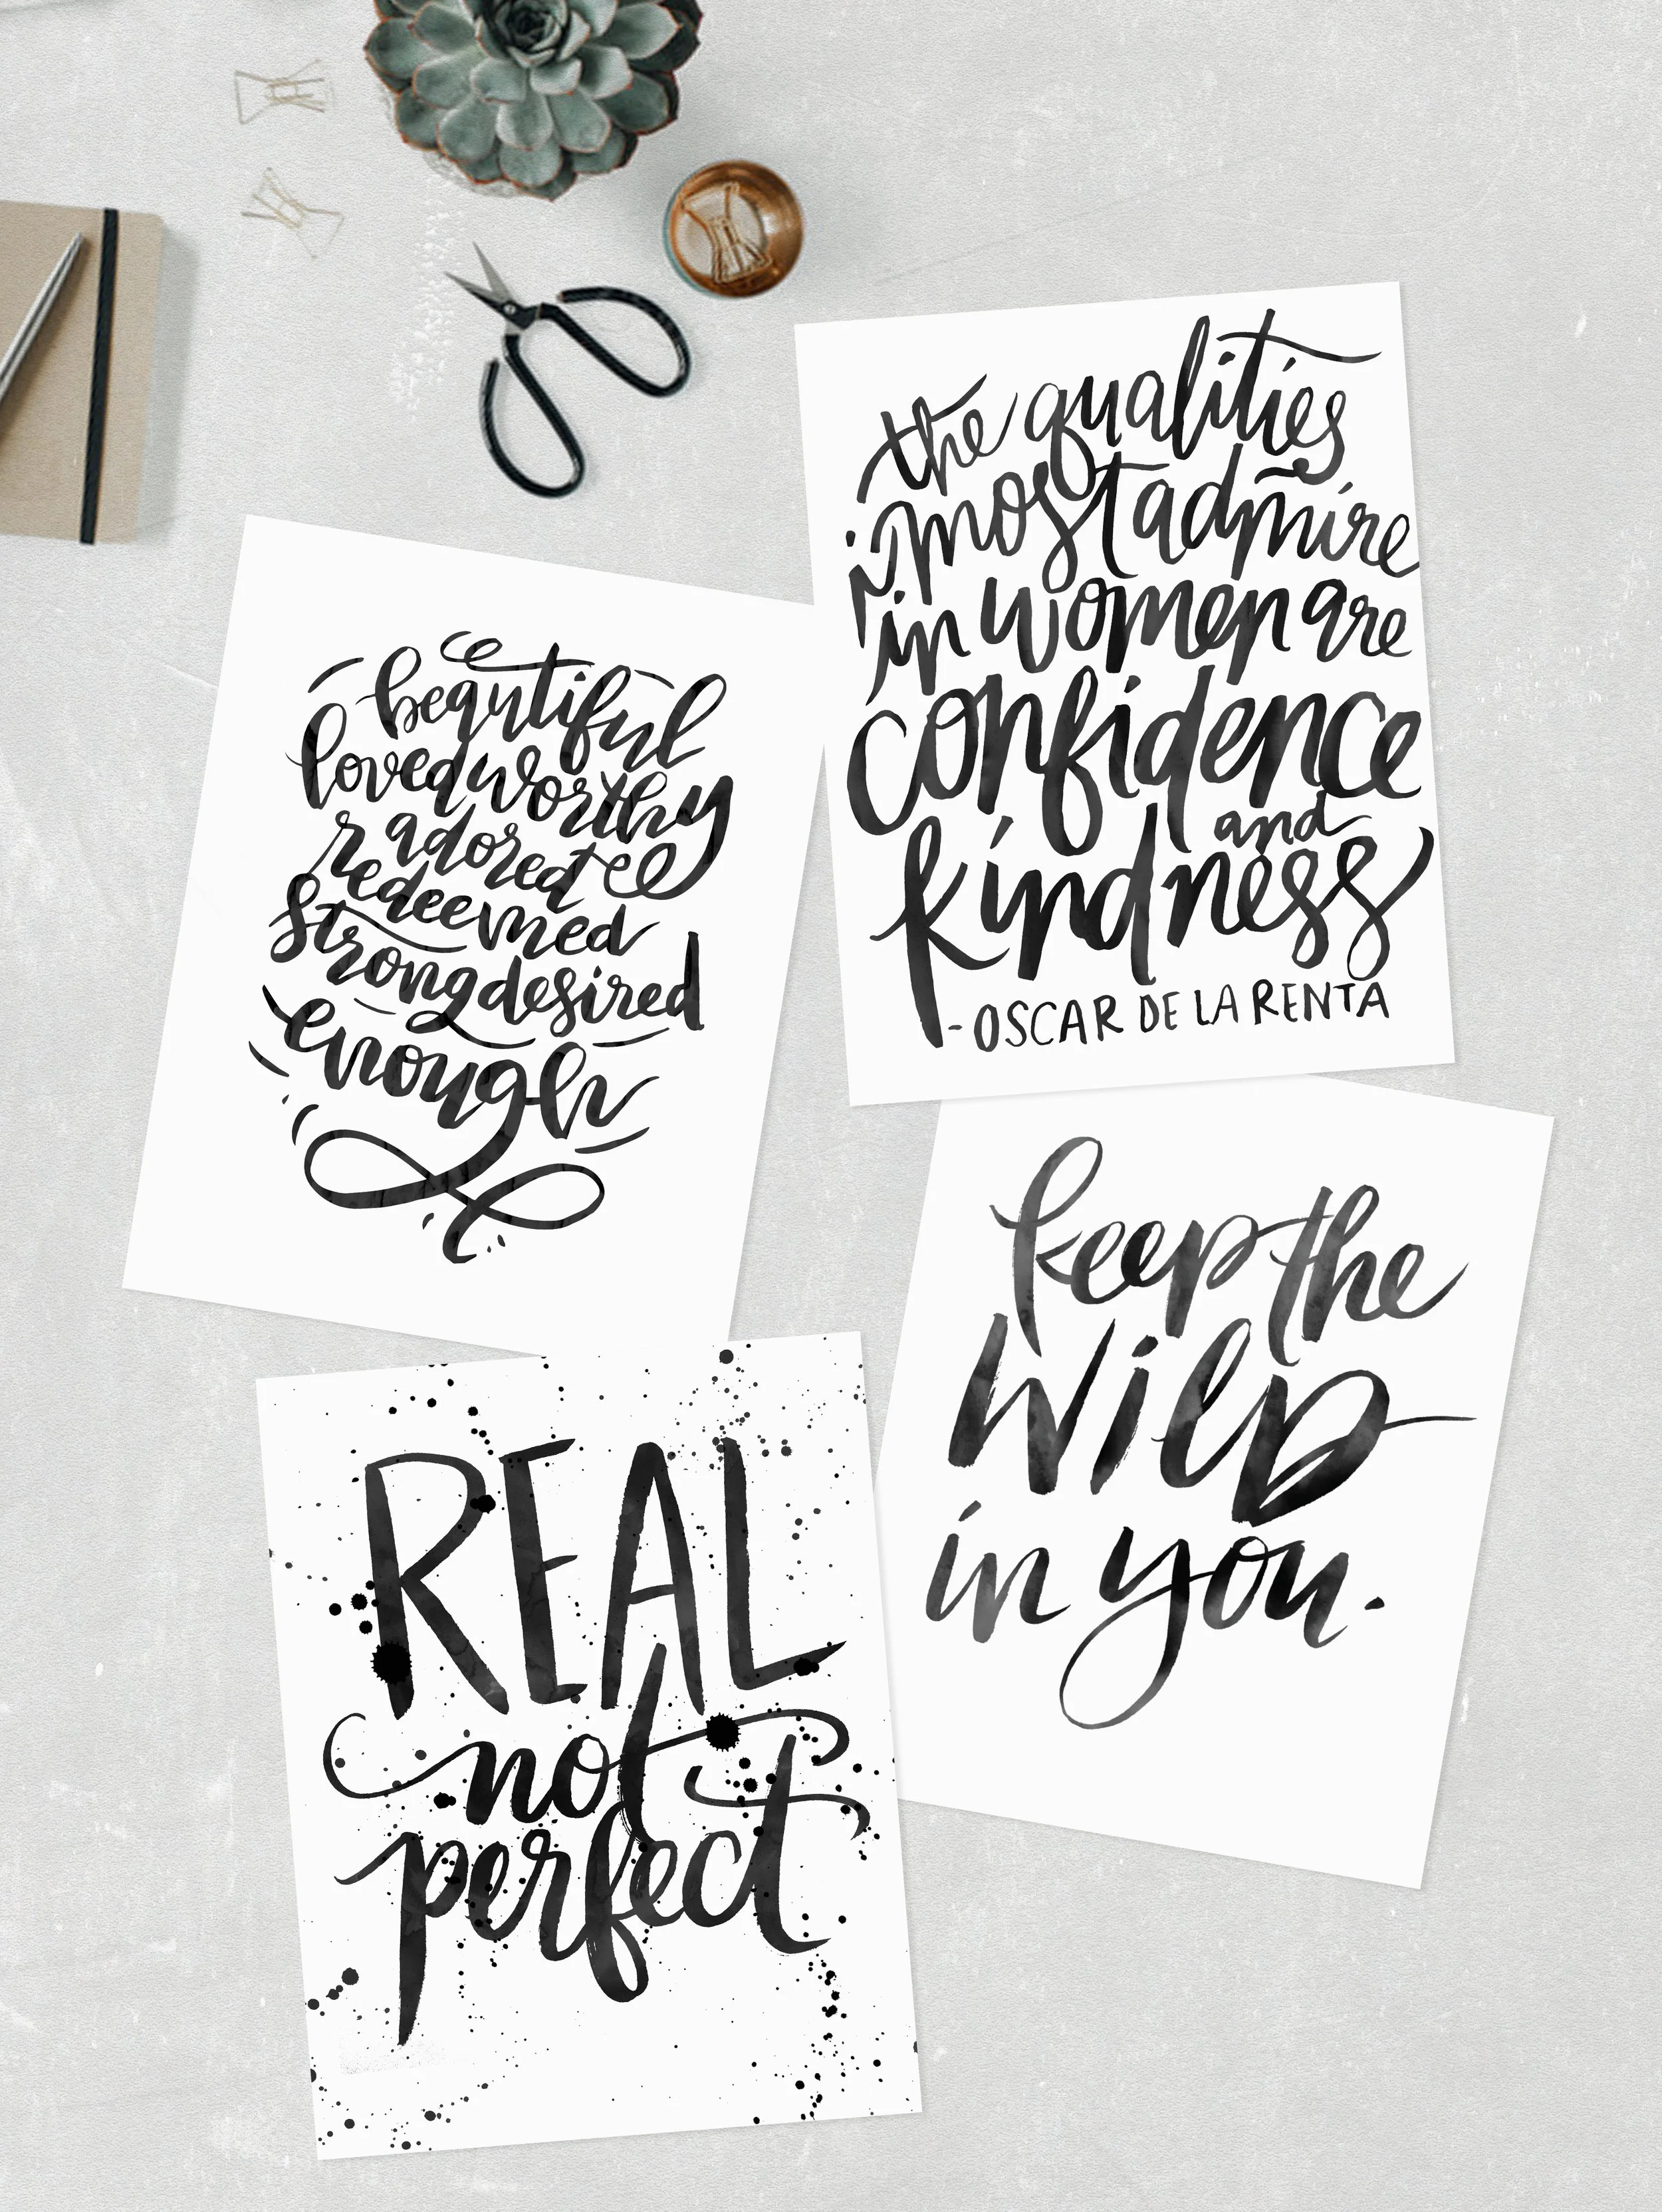 the qualities
i most admire
in women are
confidence
and
kindness
-OSCAR DE LA RENTA
beautiful
loved worthy
adored
redeemed
strong desired
enough
keep the
wild
in you.
REAL
not
perfect